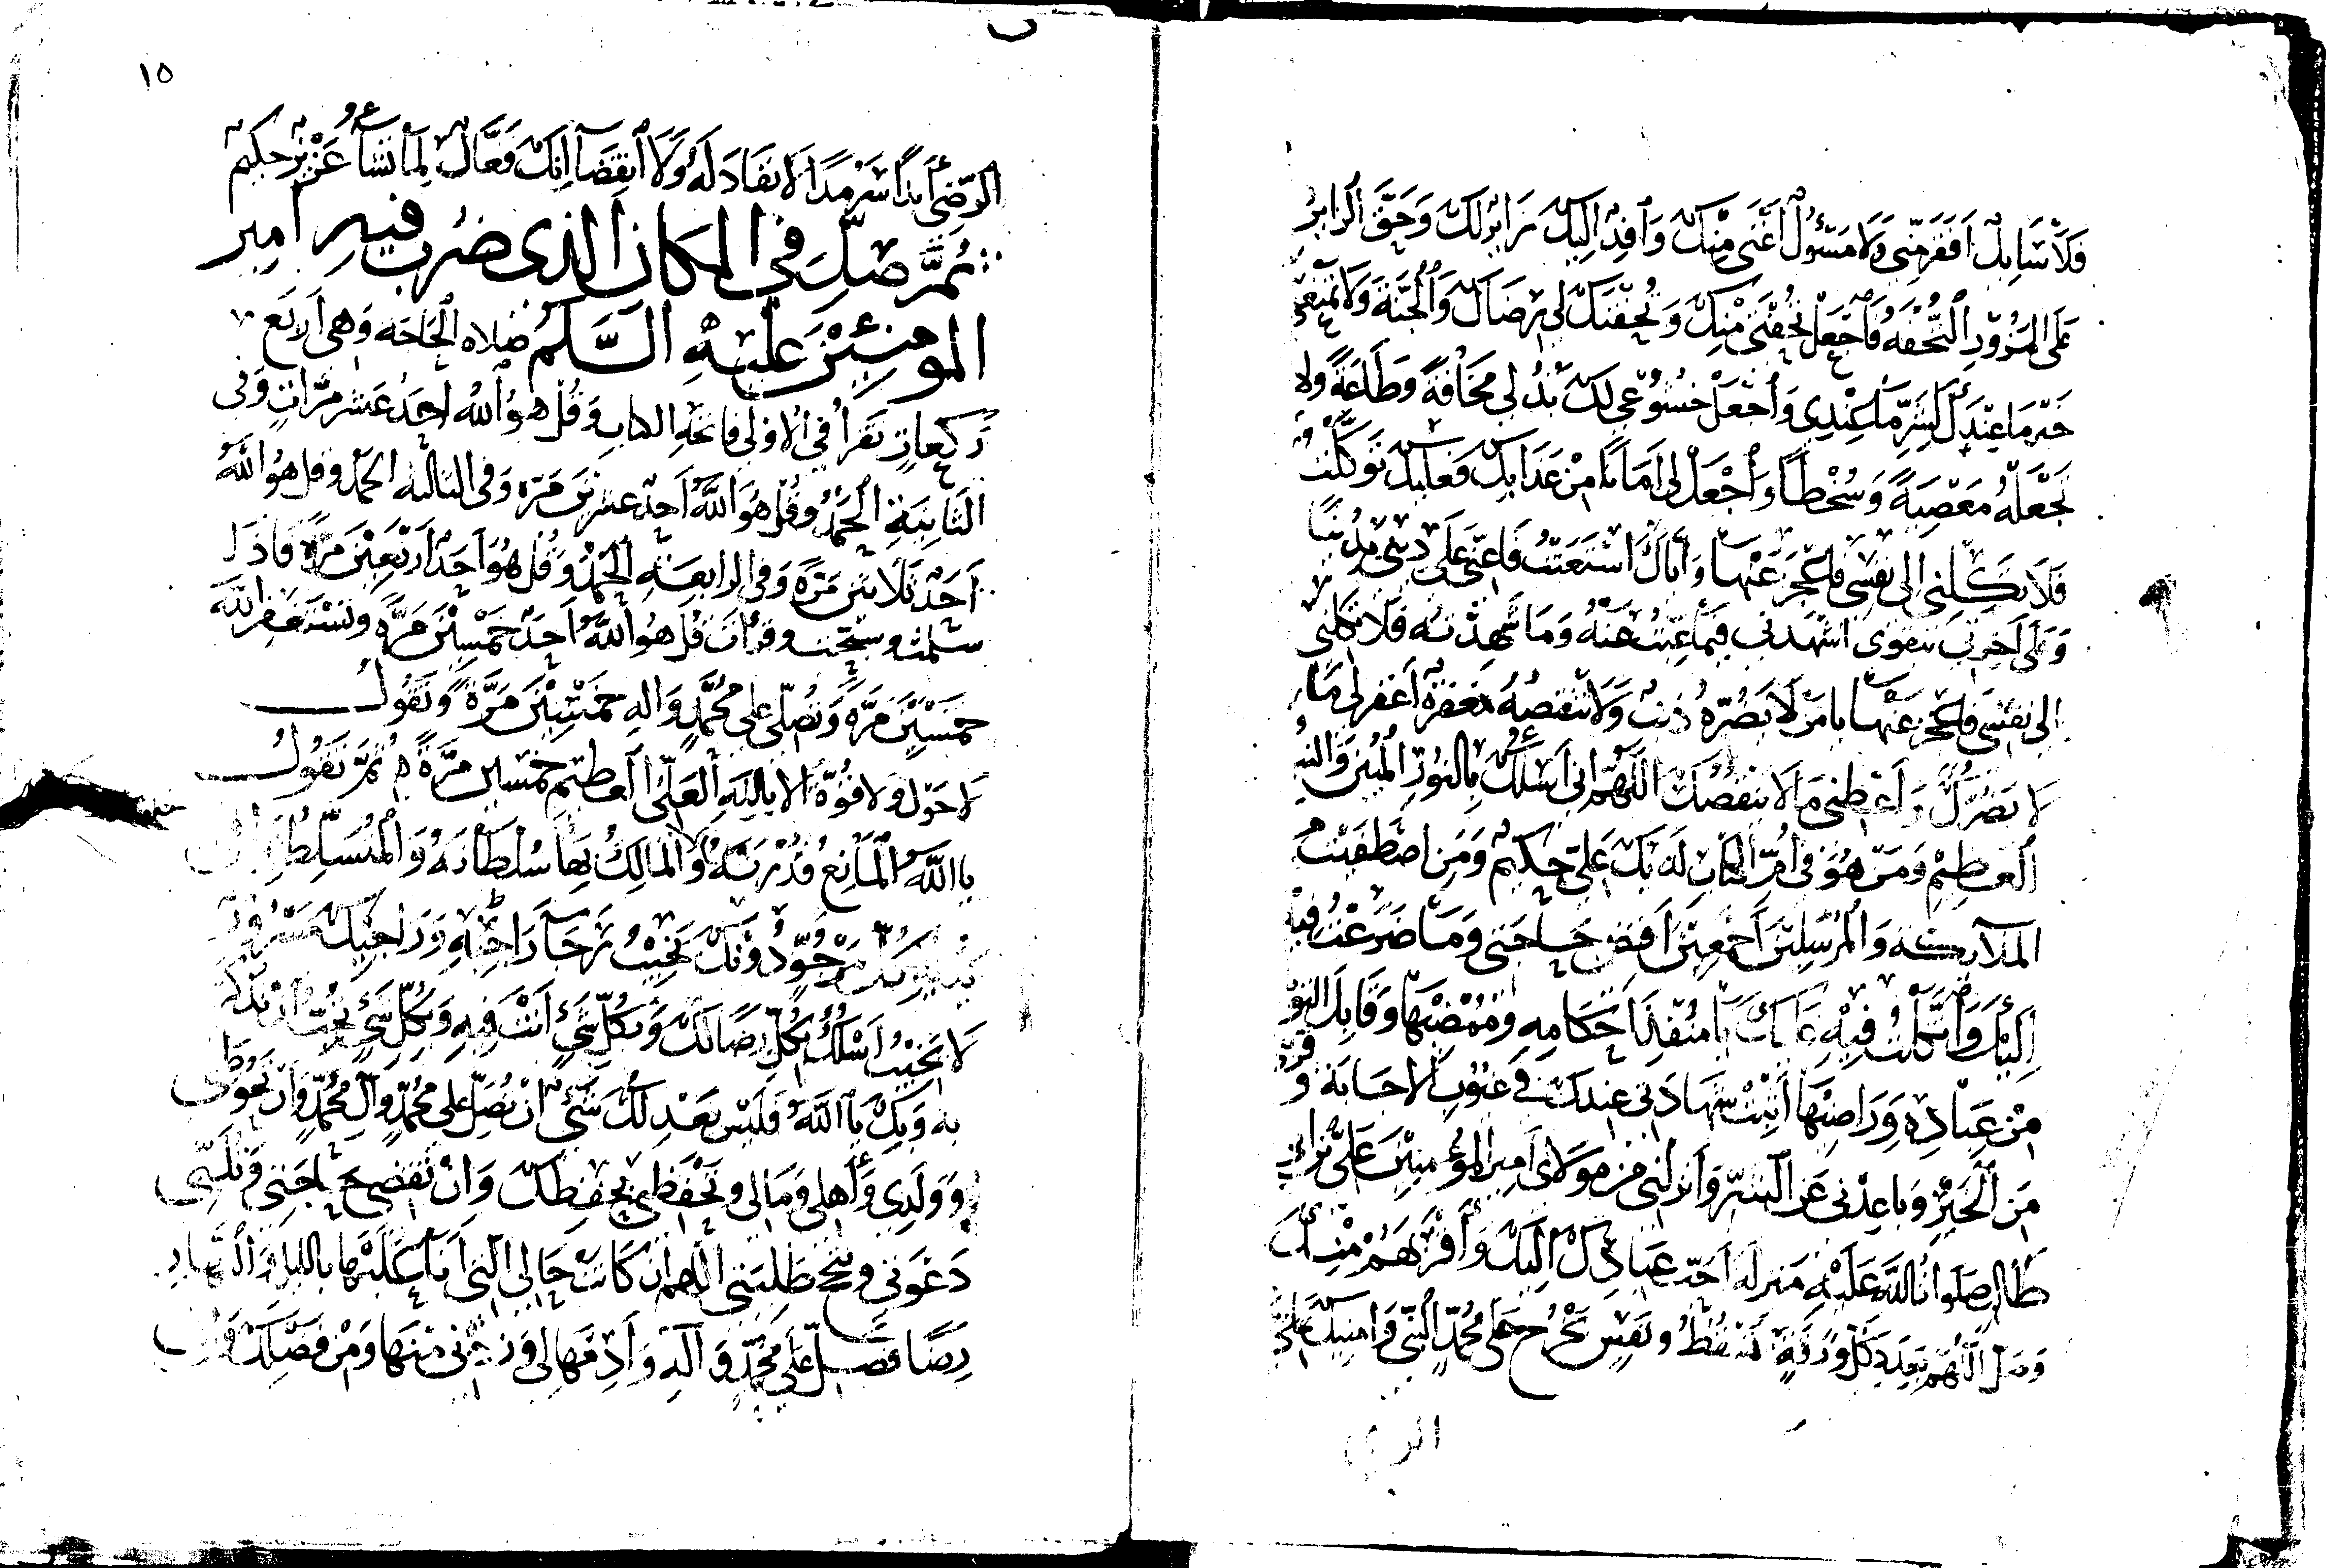 فَلَا سَائِلٌ اَفْقَرَ مِنّي وَلَا مَسْؤُلٌ اَغْنَى مِنْكَ وَاَفِدُ اِلَيْكَ زَائِرٌ لَكَ وَحَقّ الزَّائِرِ
عَلَى المَزُوْرِ التُّحْفَةُ فَاجْعَلْ تُحْفَتي مِنْكَ وَتُحْفَتَكَ لي رِضَاكَ وَالْجَنَّةَ وَلَا تَمْنَعْني
خَيْرَ مَا عِنْدَكَ لِشَرِّ مَا عِنْدِي وَاجْعَلْ خُشُوْعي لَكَ لي مَخَافَةً وَطَاعَةً وَلا
تَجْعَلْهُ مَعْصِيَةً وَسُخْطاً وَاجْعَلْ لي اَمَانًا مِنْ عَذَابِكَ فَعَلَيْكَ تَوَكَّلْتُ
فَلَا تَكِلْني اِلى نَفْسي فَاَعْجَزَ عَنْهَا وَاِيَّاكَ اسْتَعَنْتُ فَاَعِنّي عَلَى دِيْني بِدُنْيَا
وَعَلَى آخِرَتي بِتَقْوَى اشْهَدْني فِيْمَا غِبْتُ عَنْهُ وَمَا شَهِدْتُه فَلَا تَكِلْني
اِلى نَفْسي فَاَعْجَزَ عَنْهَا يَا مَنْ لَا يَضُرُّهُ ذَنْبٌ وَلَا تَنْقُصُهُ مَغْفِرَةٌ اِغْفِرْ لي مَا
لَا يَضُرُّكَ وَاَعْطِني مَا لَا يَنْقُصُكَ اَللّهُمَّ اِني اَسْئَلُكَ بِالنُّوْرِ المُبِيْنِ وَالنَّبَاِ
العَظِيْمِ وَمَنْ هُوَ فِي اُمِّ الْكِتَابِ لَدَيْكَ عَلِيّ حَكِيْمٌ وَمَنِ اصْطَفَيْتَ مِنَ
المَلَائِكَةِ وَالْمُرْسَلِيْنَ اَجْمَعِيْنَ اِقْضِ حَاجَتي وَمَا ضَرَعْتُ فِيْهِ
اِلَيْكَ وَاتَّكَلْتُ فِيْهِ عَلَيْكَ يَا مُنَفِّذَ اَحْكَامِهِ وَمُمْضِيْهَا وَقَابِلَ التَّوْبَةِ
مِنْ عِبَادِهِ وَرَاضِيْهَا اَثْبِتْ شَهَادَتي عِنْدَكَ في عُيُوْنِ الاجَابَةِ وَقَرِّبْني
مِنَ الْخَيْرِ وَبَاعِدْني عَنِ الشَّرِّ وَاَنْزِلْني مِنْ مَوْلَايَ اَمِيْرِ المُؤْمِنِيْنَ عَلِيّ بْنِ اَبِي
طَالِبٍ صَلَوَاتُ اللّهِ عَلَيْهِ مَنْزِلَةَ اَحَبِّ عِبَادِكَ اِلَيْكَ وَاَقْرَبِهِمْ مِنْكَ
وَصَلِّ اللّهُمَّ بِعَدَدِ كُلِّ وَرَقَةٍ تَسْقُطُ وَنَفَسٍ يَخْرُجُ عَلى مُحَمَّدٍ النَّبِيّ
١٥
الرَّضِيِّ اَبَداً سَرْمَدًا لَا نَفَادَ لَهُ وَلَا انْقِضَا اِنَّكَ فَعَّالٌ لِمَا تَشَاءُ عَزِيْزٌ حَكِيمٌ
ثُمَّ صَلِّ في المَكَانِ الَّذِى ضُرِبَ فِيْهِ امِير
المُومِنِيْنَ عَلَيْهِ السَّلَمُ صَلاه الْحَاجَه وَهي اَرْبَع
رَكَعَاتٍ تَقْرَأُ في الاولى فاتحة الكتاب وَقُلْ هُوَ اللّهُ اَحَدٌ عَشر مَرَّاتٍ وَفي
الثَّانِيَةِ الْحَمْدُ وَقُلْ هُوَ اللَّهُ اَحَدٌ عِشْرِيْنَ مَرَّة وَفي الثالثه الحمد وقل هُوَ اللّهُ
اَحَدٌ ثَلَاثِيْنَ مَرَّةً وَفي الرابِعَةِ الْحَمْدُ وَقُلْ هُوَ اَحَدٌ اَرْبَعِيْنَ مَرَّةً فَاذَا
سَلَّمْتَ وَسَبَّحْتَ وَقَرَأْتَ قُلْ هُوَ اللَّهُ اَحَدٌ خَمْسِيْنَ مَرَّةً وَتَسْتَغْفِرُ اللّهَ
خَمْسِيْنَ مَرَّةً وَتُصَلّي عَلى مُحَمَّدٍ وَالِهِ خَمْسِيْنَ مَرَّةً وَتَقُولُ
لَا حَوْلَ وَلَا قُوَّةَ الا بِاللهِ الْعَلِيِّ العَظِيْمِ خَمْسِين مَرَّةً ثُمَّ تَقُولُ
يَا اللَّهُ المَانِعُ قُدْرَتَهُ وَالمَالِكُ بِهَا سُلْطَانَهُ وَالْمُتَسَلِّطُ
مَرْجُوٍّ دُوْنَكَ يَخِيْبُ رَجَاءُ رَاجِيْهِ وَرَاجِيْكَ مَسْرُوْرٌ
لَا يَخِيْبُ اَسْئَلُكَ بِكُلِّ رِضًا لَكَ وَبِكُلِّ شَيْءٍ اَنْتَ فِيْهِ وَبِكُلِّ شَيْءٍ تُحِبُّ اَنْ تُذْكَرَ
بِه وَبِكَ يَا اَللّهُ فَلَيْسَ يَعْدِلُكَ شَيْءٌ اَنْ تُصَلّي عَلى مُحَمَّدٍ وَآلِ مُحَمَّدٍ وَاَنْ تَحُوطَني
وَوَلَدِي وَاَهْلي وَمَالي وَتَحْفَظَني بِحِفْظِكَ وَاَنْ تَقْضِيَ حَاجَتي
دَعْوَتي وَنُجْحَ طَلِبَتي اللّهُمَّ اِنْ كَانَتْ حَالي الَّتي اَنَا عَلَيْهَا بِاللَّيْلِ وَالنَّهَارِ
رِضًا فَصَلِّ عَلى مُحَمَّدٍ وَآلِهِ وَاَدِمْهَا لي وَزِدْني مِنْهَا وَمِنْ فَضْلِكَ